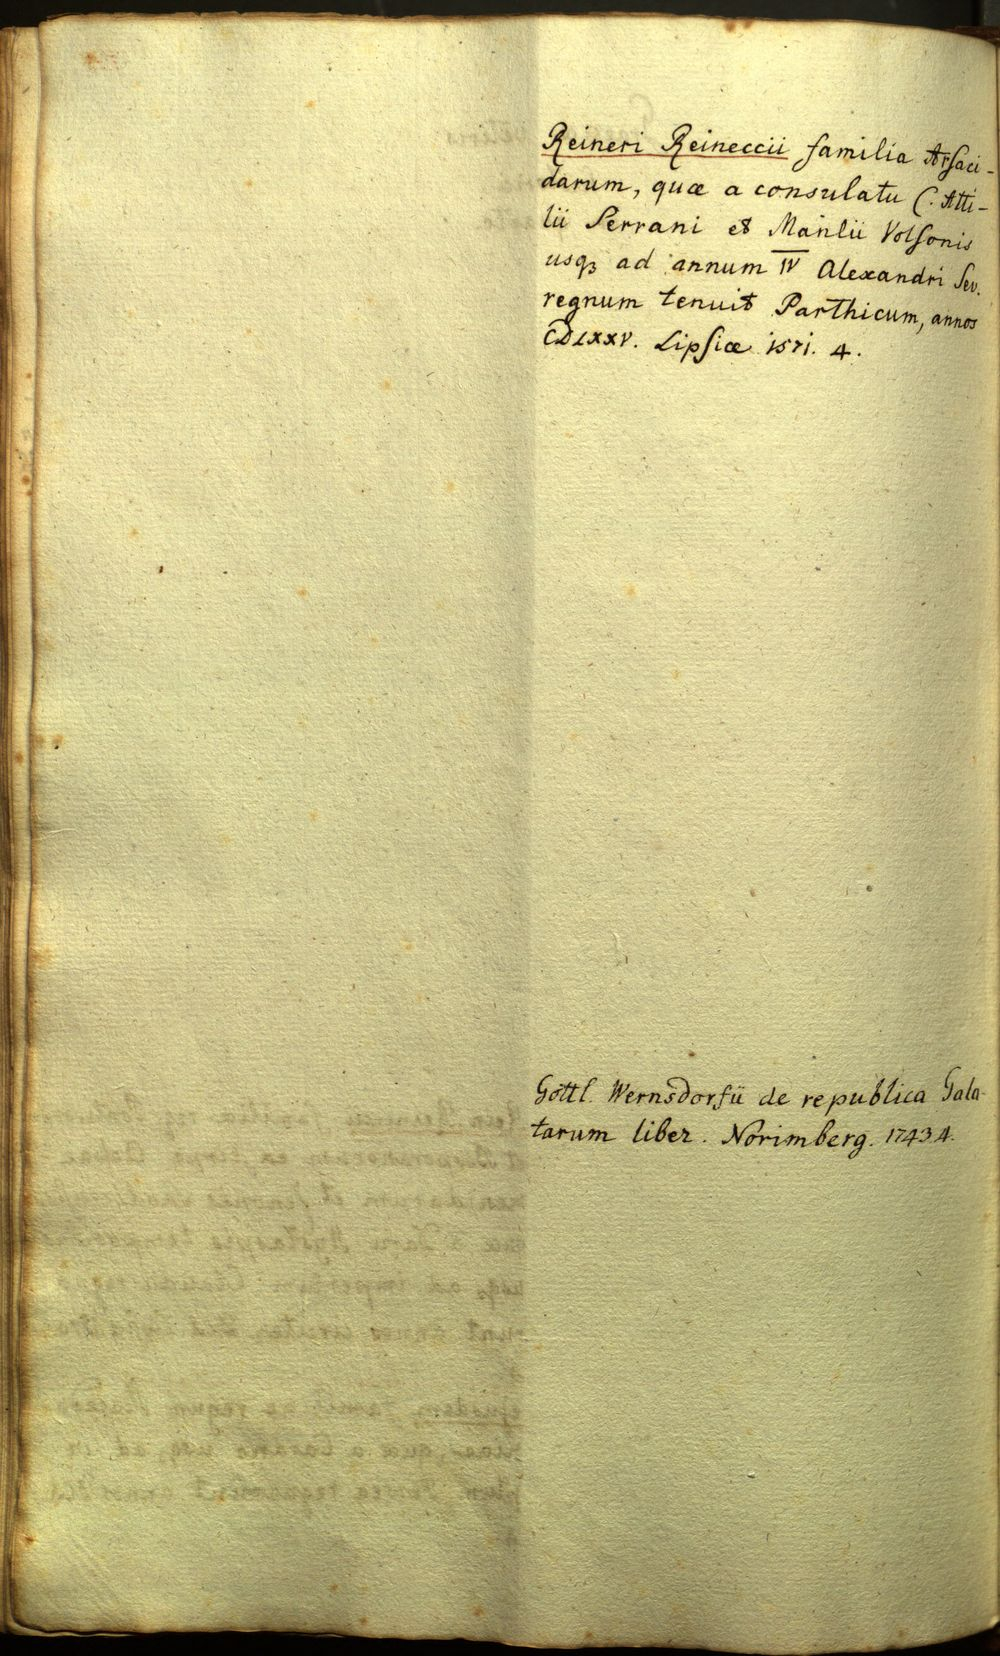 Reineri Reineccii familia Arsaci-
darum, quæ a consulatu C. Atti-
lii Serrani et Manlii Volsonis
usq; ad annum IV Alexandri Sev.
regnum tenuit Parthicum, annos
CDLXXV. Lipsiæ 1571. 4.
Gottl. Wernsdorfii de republica Gala-
tarum liber. Norimberg. 1743 4.